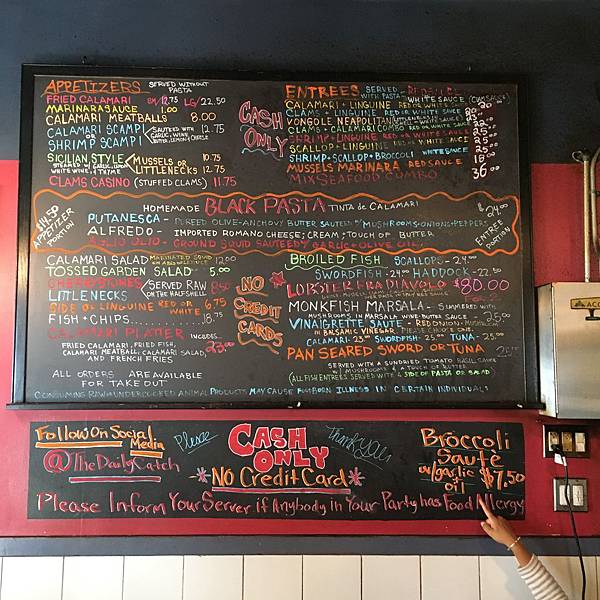 APPETIZERS SERVED WITHOUT PASTA
FRIED CALAMARI SM/12.75 LG/22.50
MARINARA SAUCE 1.00
CALAMARI MEATBALLS 8.00
CALAMARI SCAMPI
OR
SHRIMP SCAMPI
SAUTEED WITH GARLIC, WINE, BUTTER, LEMON, & CHEESE 12.75
SICILIAN STYLE MUSSELS OR 10.75
STEAMED W/ GARLIC, LEMON, WHITE WINE, & THYME LITTLENECKS 12.75
CLAMS CASINO (STUFFED CLAMS) 11.75
CASH ONLY
ENTREES SERVED WITH PASTA
CALAMARI + LINGUINE RED OR WHITE SAUCE
CLAMS + LINGUINE RED OR WHITE SAUCE
VONGOLE NEAPOLITAN
CLAMS + CALAMARI COMBO RED OR WHITE
SHRIMP + LINGUINE RED OR WHITE SAUCE
SCALLOP + LINGUINE RED OR WHITE SAUCE
SHRIMP + SCALLOP + BROCCOLI WHITE SAUCE
MUSSELS MARINARA RED SAUCE 18.00
MIX SEAFOOD COMBO 36.00
$14.50 APPETIZER PORTION
HOMEMADE BLACK PASTA TINTA de CALAMARI
PUTANESCA - PUREED OLIVE-ANCHOVY BUTTER SAUTEED W/ MUSHROOMS-ONIONS+PEPPERS
ALFREDO - IMPORTED ROMANO CHEESE; CREAM + TOUCH OF BUTTER
AGLIO OLIO - GROUND SQUID SAUTEED W/ GARLIC + OLIVE OIL
$24.00 ENTREE PORTION
CALAMARI SALAD MARINATED SQUID ON A BED OF LETTUCE 12.00
TOSSED GARDEN SALAD 5.00
CHERRYSTONES
LITTLENECKS
SERVED RAW ON THE HALFSHELL 8.50 9.50
SIDE OF LINGUINE RED OR WHITE 6.75
FISH + CHIPS 18.75
CALAMARI PLATTER INCLUDES... 23.00
FRIED CALAMARI, FRIED FISH,
CALAMARI MEATBALL, CALAMARI SALAD,
AND FRENCH FRIES
ALL ORDERS ARE AVAILABLE
FOR TAKE OUT
NO CREDIT CARDS
BROILED FISH SCALLOPS - 24.75
SWORDFISH - 24.75 HADDOCK - 22.50
LOBSTER FRA DIAVOLO $80.00
FOR 2
MONKFISH MARSALA - SIMMERED WITH
MUSHROOMS IN MARSALA WINE + BUTTER SAUCE
VINAIGRETTE SAUTE - RED ONION + MUSHROOM
IN BALSAMIC VINEGAR. PLEASE CHOOSE
CALAMARI - SWORDFISH - TUNA -
PAN SEARED SWORD OR TUNA
SERVED WITH A SUNDRIED TOMATO BASIL SAUCE
W/ MUSHROOMS + A TOUCH OF BUTTER
(ALL FISH ENTREES SERVED WITH A SIDE OF PASTA OR SALAD)
CONSUMING RAW OR UNDERCOOKED ANIMAL PRODUCTS MAY CAUSE FOODBORN ILLNESS IN CERTAIN INDIVIDUALS
Follow On Social Media
@TheDailyCatch
Please
Cash Only
*No Credit Card*
Thank you
Broccoli Sauté
w/garlic oil $7.50
Please Inform Your Server if Anybody in Your Party has Food Allergy